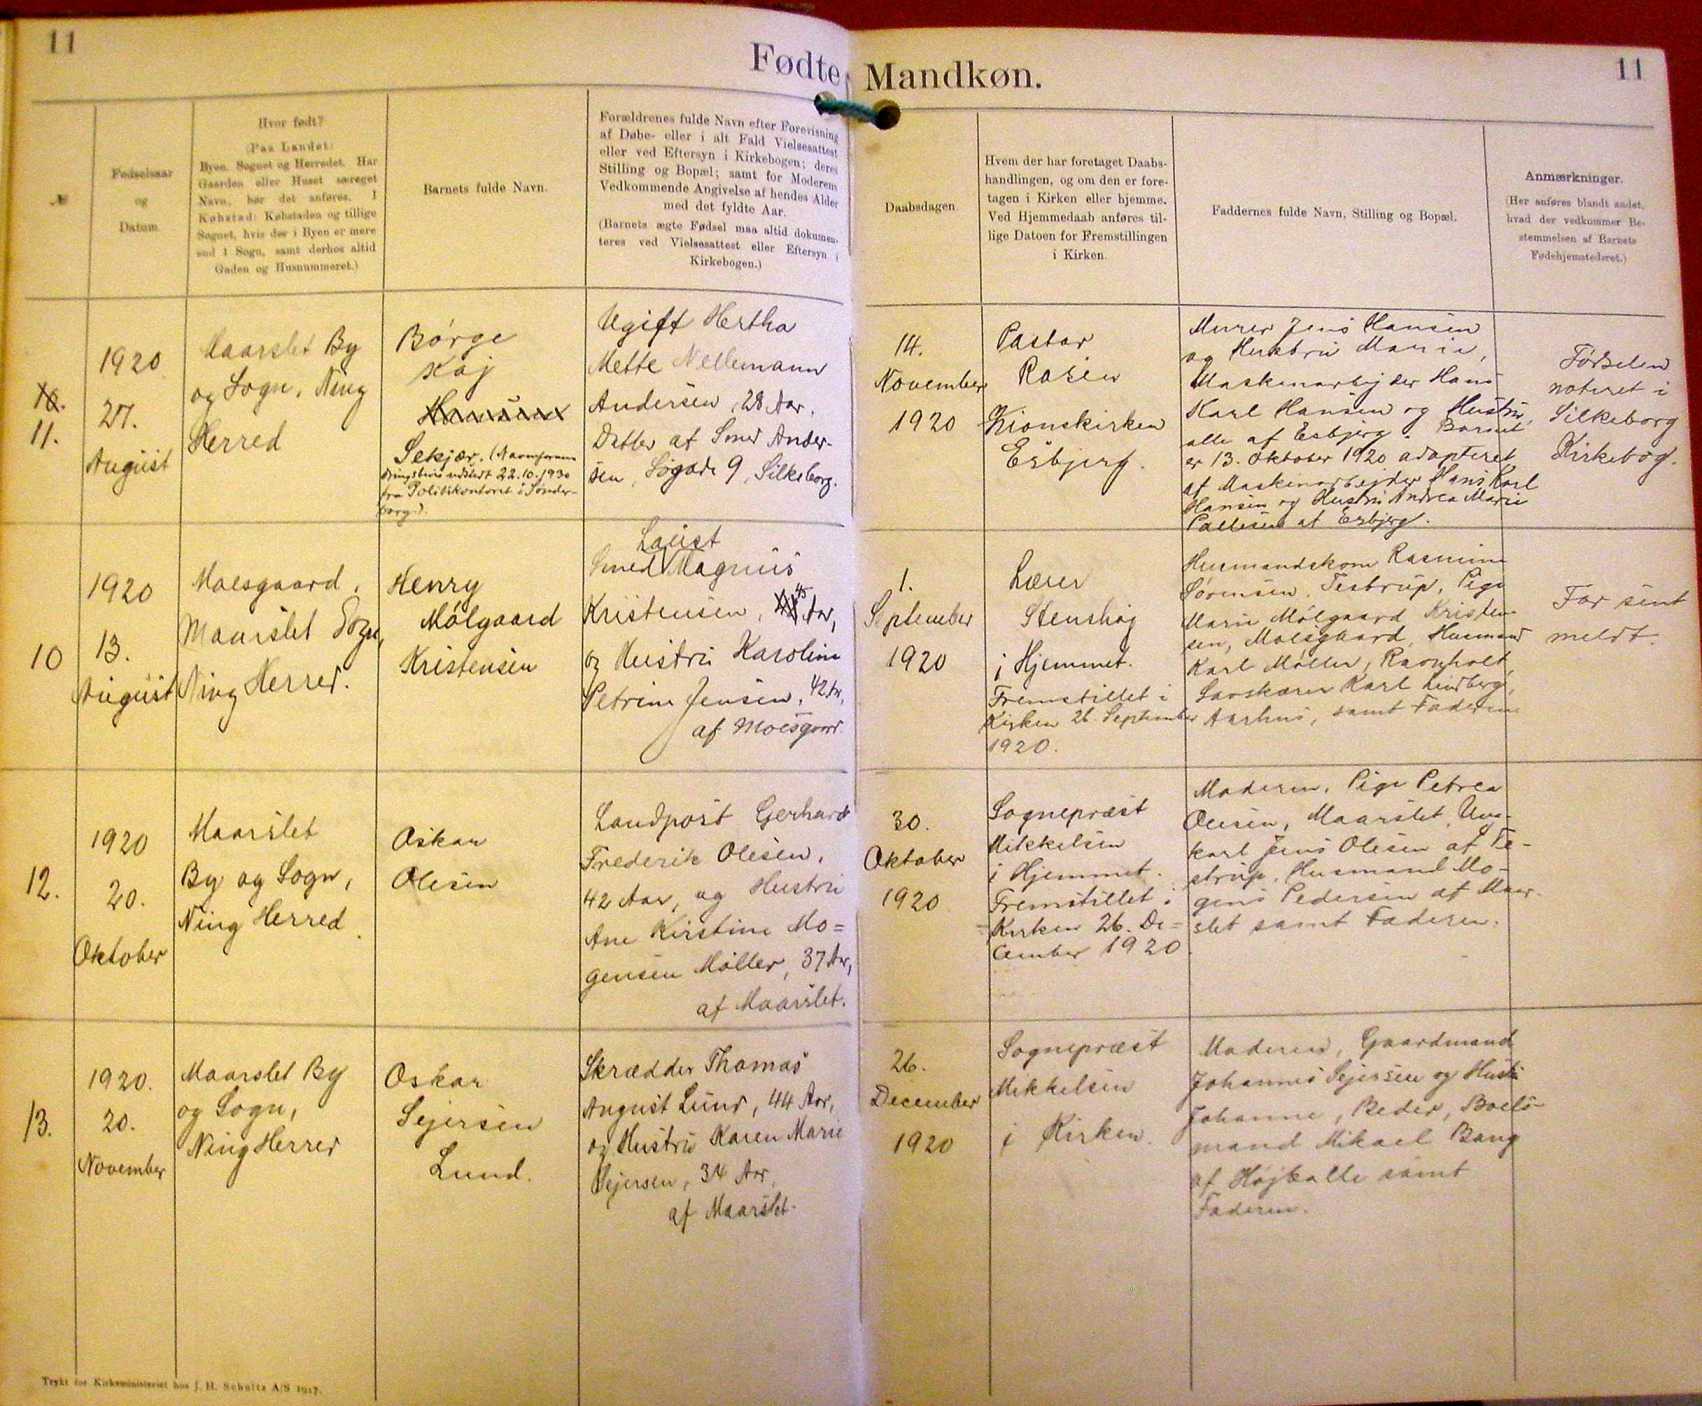 11
Fødte Mandkøn.
11
№
Fødselsaar
og
Datum.
Hvor født?
(Paa Landet:
Byen, Sognet og Herredet. Har
Gaarden eller Huset særeget
Navn, bør det anføres. I
Købstad: Købstaden og tillige
Sognet, hvis der i Byen er mere
end 1 Sogn, samt derhos altid
Gaden og Husnummeret.)
Barnets fulde Navn.
Forældrenes fulde Navn efter Forevisning
af Døbe- eller i alt Fald Vielsesattest
eller ved Eftersyn i Kirkebogen; deres
Stilling og Bopæl; samt for Moderens
Vedkommende Angivelse af hendes Alder
med det fyldte Aar.
(Barnets ægte Fødsel maa altid dokumen-
teres ved Vielsesattest eller Eftersyn i
Kirkebogen.)
Daabsdagen.
Hvem der har foretaget Daabs-
handlingen, og om den er fore-
tagen i Kirken eller hjemme.
Ved Hjemmedaab anføres til-
lige Datoen for Fremstillingen
i Kirken.
Faddernes fulde Navn, Stilling og Bopæl.
Anmærkninger.
(Her anføres blandt andet,
hvad der vedkommer Be-
stemmelsen af Barnets
Fødehjemstedsret.)
10.
11.
1920
27.
August
Maarslet By
og Sogn, Ning
Herred
Børge
Kaj
Sekjær. (Navneforan-
dringsbevis udstedt 22.10.1930
fra Politikontoret i Sønder-
borg.)
Ugift Hertha
Mette Nellemann
Andersen, 28 Aar.
Datter af Smed Ander-
sen, Søgade 9, Silkeborg.
14.
November
1920
Pastor
Rosen
Zionskirken
Esbjerg.
Murer Jens Hansen
og Hustru Maria,
Maskinarbejder Hans
Karl Hansen og Hustru,
alle af Esbjerg. Barnet
er 13. Oktober 1920 adopteret
af Maskinarbejder Hans Karl
Hansen og Hustru Andrea Marie
Pallesen af Esbjerg.
Fødselen
noteret i
Silkeborg
Kirkebog.
10
1920
13.
August
Moesgaard,
Maarslet Sogn,
Ning Herred.
Henry
Mölgaard
Kristensen
Laust
Smed Magnus
Kristensen, 45 Aar,
og Hustru Karoline
Petrine Jensen, 42 Aar,
af Moesgaard.
1.
September
1920
Lærer
Stenshøj
i Hjemmet.
Fremstillet i
Kirken 26. September
1920.
Husmandskone Rasmine
Sørensen, Testrup, Pige
Marie Mölgaard Kristen-
sen, Moesgaard, Husmand
Karl Møller, Ravnholt
Savskærer Karl Lindberg,
Aarhus, samt Faderen
For sent
meldt.
12.
1920
20.
Oktober
Maarslet
By og Sogn,
Ning Herred.
Oskar
Olesen
Landpost Gerhardt
Frederik Olesen,
42 Aar, og Hustru
Ane Kirstine Mo=
gensen Møller, 37 Aar,
af Maarslet.
30.
Oktober
1920
Sognepræst
Mikkelsen
i Hjemmet.
Fremstillet i
Kirken 26. De=
cember 1920
Moderen, Pige Petrea
Olesen, Maarslet, Ung-
karl Jens Olesen af Te-
strup, Husmand Mo-
gens Pedersen af Maar-
slet samt Faderen.
13.
1920.
20.
November
Maarslet By
og Sogn,
Ning Herred
Oskar
Sejersen
Lund.
Skrædder Thomas
August Lund, 44 Aar,
og Hustru Karen Marie
Sejersen, 34 Aar,
af Maarslet.
26.
December
1920
Sognepræst
Mikkelsen
i Kirken.
Moderen, Gaardmand
Johannes Sejersen og Hustru
Johanne, Beder, Boels-
mand Mikael Bang
af Højballe samt
Faderen.
Trykt for Kirkeministeriet hos J. H. Schultz A/S 1917.